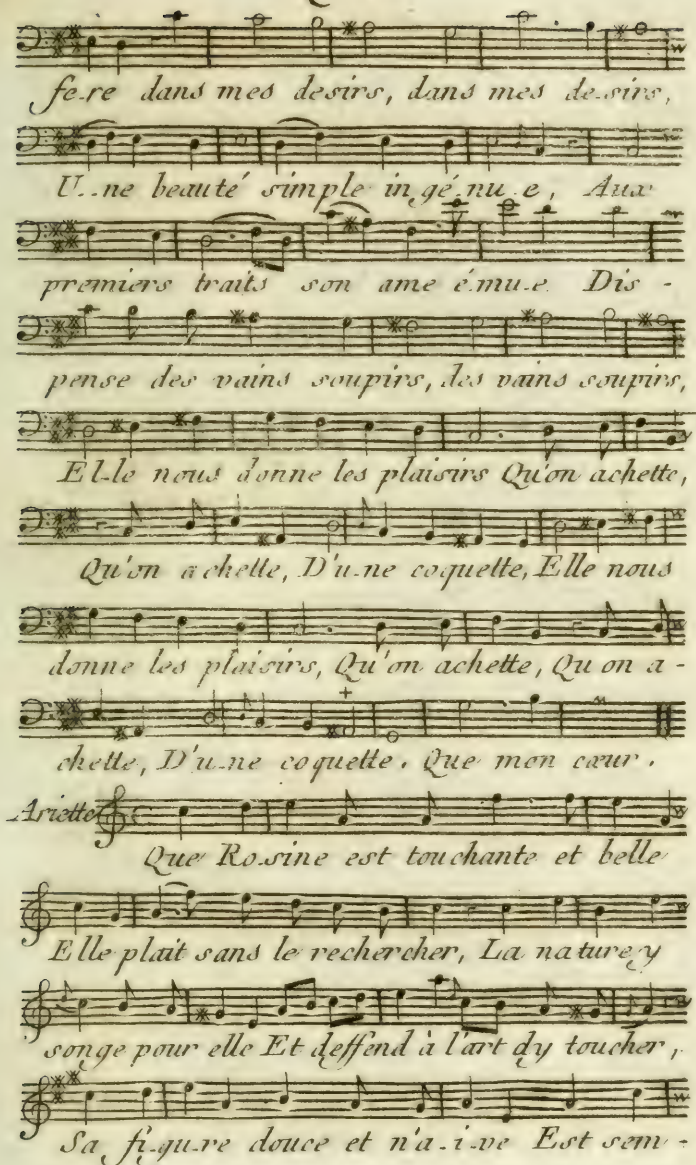 fe-re dans mes desirs, dans mes de-sirs,
U-ne beauté simple in gé-nu-e, Aux
premiers traits son ame é-mu-e Dis -
pense des vains soupirs, des vains soupirs,
El-le nous donne les plaisirs Qu'on achette,
Qu'on a chette, D'u-ne coquette, Elle nous
donne les plaisirs, Qu'on achette, Qu on a -
chette, D'u-ne coquette. Que mon cœur.
Ariette
Que Ro-sine est touchante et belle
Elle plait sans le rechercher, La nature y
songe pour elle Et deffend à l'art dy toucher,
Sa fi-gu-re douce et n'a-i-ve Est sem -